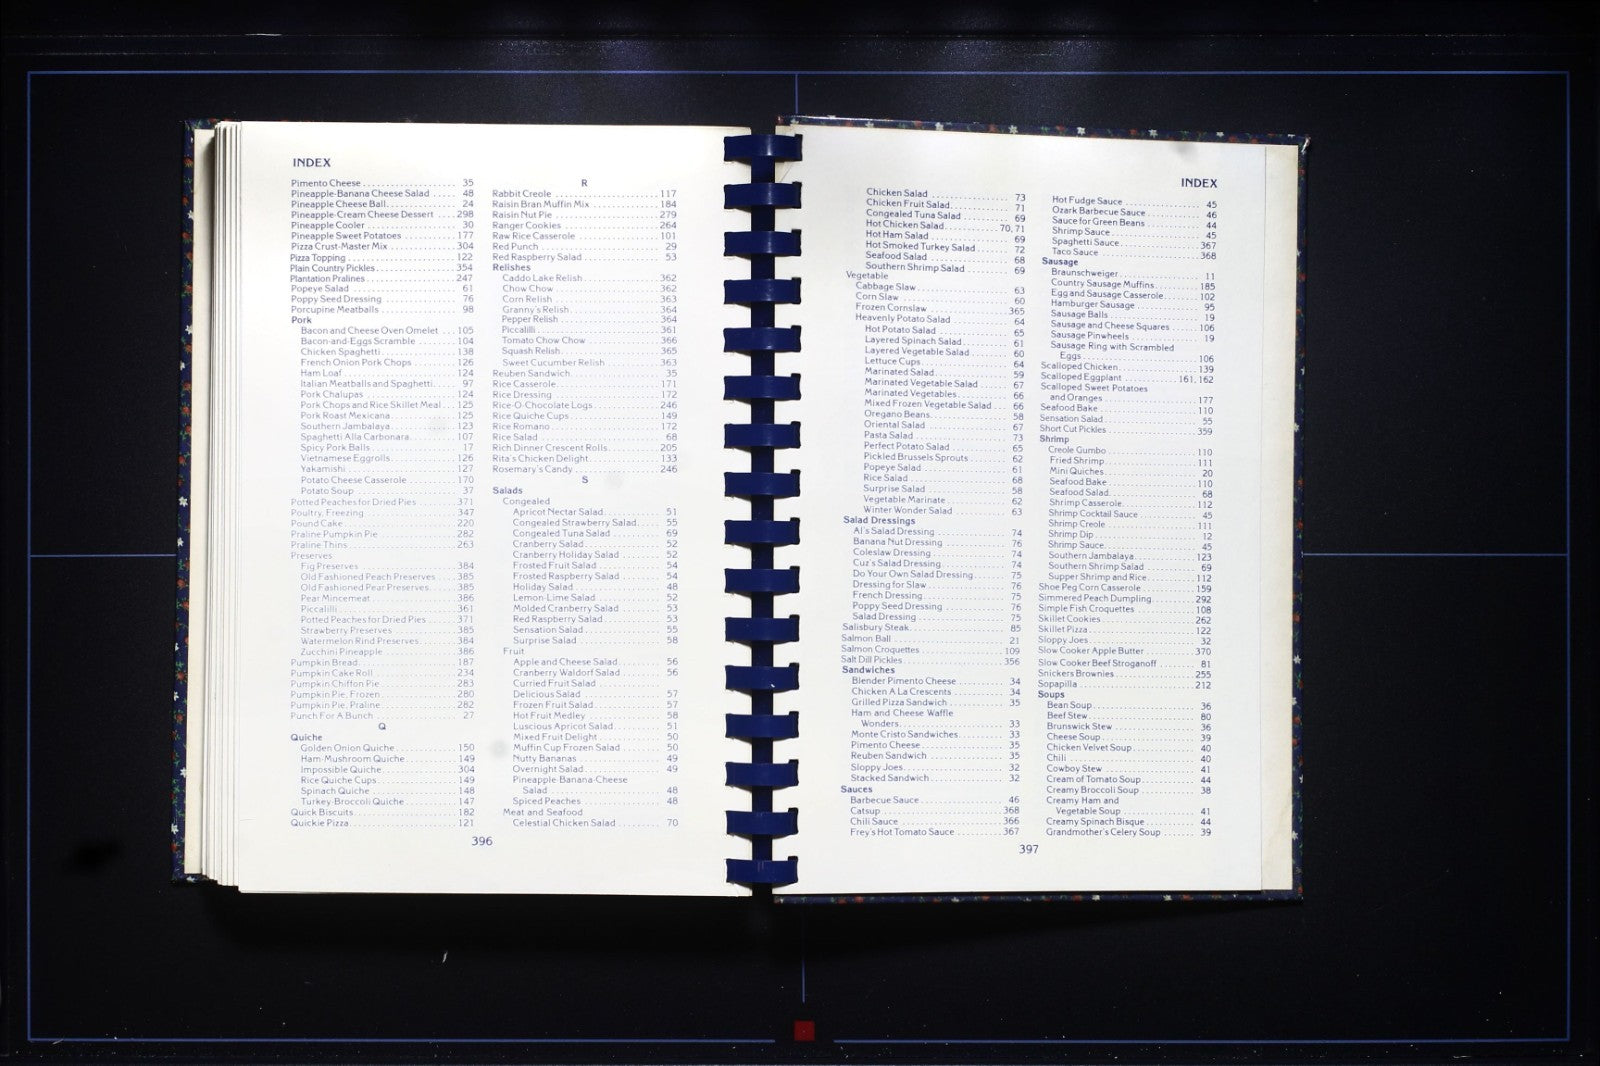 INDEX
Pimento Cheese . . . . . . . . . . . . . . . . . 35
Pineapple-Banana Cheese Salad . . . . . 48
Pineapple Cheese Ball . . . . . . . . . . . . 24
Pineapple-Cream Cheese Dessert . . . . 298
Pineapple Cooler . . . . . . . . . . . . . . . . 30
Pineapple Sweet Potatoes . . . . . . . . . 177
Pizza Crust-Master Mix . . . . . . . . . . . 304
Pizza Topping . . . . . . . . . . . . . . . . . . 122
Plain Country Pickles . . . . . . . . . . . . . 354
Plantation Pralines . . . . . . . . . . . . . . 247
Popeye Salad . . . . . . . . . . . . . . . . . . 61
Poppy Seed Dressing . . . . . . . . . . . . 76
Porcupine Meatballs . . . . . . . . . . . . . 98
Pork
Bacon and Cheese Oven Omelet . . . 105
Bacon-and-Eggs Scramble . . . . . . . . 104
Chicken Spaghetti . . . . . . . . . . . . . . 138
French Onion Pork Chops . . . . . . . . 126
Ham Loaf . . . . . . . . . . . . . . . . . . . . 124
Italian Meatballs and Spaghetti . . . . 97
Pork Chalupas . . . . . . . . . . . . . . . . 124
Pork Chops and Rice Skillet Meal . . . 125
Pork Roast Mexicana . . . . . . . . . . . . 125
Southern Jambalaya . . . . . . . . . . . . 123
Spaghetti Alla Carbonara . . . . . . . . . 107
Spicy Pork Balls . . . . . . . . . . . . . . . 17
Vietnamese Eggrolls . . . . . . . . . . . . 126
Yakamishi . . . . . . . . . . . . . . . . . . . . 127
Potato Cheese Casserole . . . . . . . . . 170
Potato Soup . . . . . . . . . . . . . . . . . . 37
Potted Peaches for Dried Pies . . . . . . 371
Poultry, Freezing . . . . . . . . . . . . . . . 347
Pound Cake . . . . . . . . . . . . . . . . . . . 220
Praline Pumpkin Pie . . . . . . . . . . . . . 282
Praline Thins . . . . . . . . . . . . . . . . . . 263
Preserves
Fig Preserves . . . . . . . . . . . . . . . . . 384
Old Fashioned Peach Preserves . . . . 385
Old Fashioned Pear Preserves . . . . . 385
Pear Mincemeat . . . . . . . . . . . . . . . 386
Piccalilli . . . . . . . . . . . . . . . . . . . . . 361
Potted Peaches for Dried Pies . . . . . 371
Strawberry Preserves . . . . . . . . . . . 385
Watermelon Rind Preserves . . . . . . . 384
Zucchini Pineapple . . . . . . . . . . . . . 386
Pumpkin Bread . . . . . . . . . . . . . . . . . 187
Pumpkin Cake Roll . . . . . . . . . . . . . . 234
Pumpkin Chiffon Pie . . . . . . . . . . . . . 283
Pumpkin Pie, Frozen . . . . . . . . . . . . . 280
Pumpkin Pie, Praline . . . . . . . . . . . . . 282
Punch For A Bunch . . . . . . . . . . . . . . 27
Q
Quiche
Golden Onion Quiche . . . . . . . . . . . 150
Ham-Mushroom Quiche . . . . . . . . . . 149
Impossible Quiche . . . . . . . . . . . . . . 304
Rice Quiche Cups . . . . . . . . . . . . . . 149
Spinach Quiche . . . . . . . . . . . . . . . . 148
Turkey-Broccoli Quiche . . . . . . . . . . 147
Quick Biscuits . . . . . . . . . . . . . . . . . . 182
Quickie Pizza . . . . . . . . . . . . . . . . . . . 121
R
Rabbit Creole . . . . . . . . . . . . . . . . . . 117
Raisin Bran Muffin Mix . . . . . . . . . . . . 184
Raisin Nut Pie . . . . . . . . . . . . . . . . . . 279
Ranger Cookies . . . . . . . . . . . . . . . . . 264
Raw Rice Casserole . . . . . . . . . . . . . . 101
Red Punch . . . . . . . . . . . . . . . . . . . . 29
Red Raspberry Salad . . . . . . . . . . . . . 53
Relishes
Caddo Lake Relish . . . . . . . . . . . . . . 362
Chow Chow . . . . . . . . . . . . . . . . . . 362
Corn Relish . . . . . . . . . . . . . . . . . . . 363
Granny's Relish . . . . . . . . . . . . . . . . 364
Pepper Relish . . . . . . . . . . . . . . . . . 364
Piccalilli . . . . . . . . . . . . . . . . . . . . . 361
Tomato Chow Chow . . . . . . . . . . . . 366
Squash Relish . . . . . . . . . . . . . . . . . 365
Sweet Cucumber Relish . . . . . . . . . . 363
Reuben Sandwich . . . . . . . . . . . . . . . 35
Rice Casserole . . . . . . . . . . . . . . . . . . 171
Rice Dressing . . . . . . . . . . . . . . . . . . 172
Rice-O-Chocolate Logs . . . . . . . . . . . . 246
Rice Quiche Cups . . . . . . . . . . . . . . . 149
Rice Romano . . . . . . . . . . . . . . . . . . 172
Rice Salad . . . . . . . . . . . . . . . . . . . . 68
Rich Dinner Crescent Rolls . . . . . . . . . 205
Rita's Chicken Delight . . . . . . . . . . . . 133
Rosemary's Candy . . . . . . . . . . . . . . . 246
S
Salads
Congealed
Apricot Nectar Salad . . . . . . . . . . . 51
Congealed Strawberry Salad . . . . . 55
Congealed Tuna Salad . . . . . . . . . . 69
Cranberry Salad . . . . . . . . . . . . . . 52
Cranberry Holiday Salad . . . . . . . . 52
Frosted Fruit Salad . . . . . . . . . . . . 54
Frosted Raspberry Salad . . . . . . . . 54
Holiday Salad . . . . . . . . . . . . . . . . 48
Lemon-Lime Salad . . . . . . . . . . . . 52
Molded Cranberry Salad . . . . . . . . 53
Red Raspberry Salad . . . . . . . . . . . 53
Sensation Salad . . . . . . . . . . . . . . 55
Surprise Salad . . . . . . . . . . . . . . . 58
Fruit
Apple and Cheese Salad . . . . . . . . 56
Cranberry Waldorf Salad . . . . . . . . 56
Curried Fruit Salad . . . . . . . . . . . .
Delicious Salad . . . . . . . . . . . . . . . 57
Frozen Fruit Salad . . . . . . . . . . . . . 57
Hot Fruit Medley . . . . . . . . . . . . . . 58
Luscious Apricot Salad . . . . . . . . . . 51
Mixed Fruit Delight . . . . . . . . . . . . 50
Muffin Cup Frozen Salad . . . . . . . . 50
Nutty Bananas . . . . . . . . . . . . . . . 49
Overnight Salad . . . . . . . . . . . . . . 49
Pineapple-Banana-Cheese
Salad . . . . . . . . . . . . . . . . . . . . . 48
Spiced Peaches . . . . . . . . . . . . . . . 48
Meat and Seafood
Celestial Chicken Salad . . . . . . . . . 70
396
INDEX
Chicken Salad . . . . . . . . . . . . . . . . 73
Chicken Fruit Salad . . . . . . . . . . . . 71
Congealed Tuna Salad . . . . . . . . . . 69
Hot Chicken Salad . . . . . . . . . . . 70, 71
Hot Ham Salad . . . . . . . . . . . . . . . 69
Hot Smoked Turkey Salad . . . . . . . 72
Seafood Salad . . . . . . . . . . . . . . . . 68
Southern Shrimp Salad . . . . . . . . . 69
Vegetable
Cabbage Slaw . . . . . . . . . . . . . . . . 63
Corn Slaw . . . . . . . . . . . . . . . . . . . 60
Frozen Cornslaw . . . . . . . . . . . . . . 365
Heavenly Potato Salad . . . . . . . . . . 64
Hot Potato Salad . . . . . . . . . . . . . . 65
Layered Spinach Salad . . . . . . . . . . 61
Layered Vegetable Salad . . . . . . . . 60
Lettuce Cups . . . . . . . . . . . . . . . . . 64
Marinated Salad . . . . . . . . . . . . . . . 59
Marinated Vegetable Salad . . . . . . . 67
Marinated Vegetables . . . . . . . . . . . 66
Mixed Frozen Vegetable Salad . . . . 66
Oregano Beans . . . . . . . . . . . . . . . 58
Oriental Salad . . . . . . . . . . . . . . . . 67
Pasta Salad . . . . . . . . . . . . . . . . . . 73
Perfect Potato Salad . . . . . . . . . . . . 65
Pickled Brussels Sprouts . . . . . . . . . 62
Popeye Salad . . . . . . . . . . . . . . . . . 61
Rice Salad . . . . . . . . . . . . . . . . . . . 68
Surprise Salad . . . . . . . . . . . . . . . . 58
Vegetable Marinate . . . . . . . . . . . . 62
Winter Wonder Salad . . . . . . . . . . . 63
Salad Dressings
Al's Salad Dressing . . . . . . . . . . . . . 74
Banana Nut Dressing . . . . . . . . . . . 76
Coleslaw Dressing . . . . . . . . . . . . . 74
Cur's Salad Dressing . . . . . . . . . . . . 74
Do Your Own Salad Dressing . . . . . . 75
Dressing for Slaw . . . . . . . . . . . . . . 76
French Dressing . . . . . . . . . . . . . . . 75
Poppy Seed Dressing . . . . . . . . . . . 76
Salad Dressing . . . . . . . . . . . . . . . . 75
Salisbury Steak . . . . . . . . . . . . . . . . . 85
Salmon Ball . . . . . . . . . . . . . . . . . . . 21
Salmon Croquettes . . . . . . . . . . . . . . 109
Salt Dill Pickles . . . . . . . . . . . . . . . . . 356
Sandwiches
Blender Pimento Cheese . . . . . . . . . 34
Chicken A La Crescents . . . . . . . . . . 34
Grilled Pizza Sandwich . . . . . . . . . . 35
Ham and Cheese Waffle
Wonders . . . . . . . . . . . . . . . . . . . 33
Monte Cristo Sandwiches . . . . . . . . 33
Pimento Cheese . . . . . . . . . . . . . . . 35
Reuben Sandwich . . . . . . . . . . . . . . 35
Sloppy Joes . . . . . . . . . . . . . . . . . . 32
Stacked Sandwich . . . . . . . . . . . . . 32
Sauces
Barbecue Sauce . . . . . . . . . . . . . . . 46
Catsup . . . . . . . . . . . . . . . . . . . . . . 368
Chili Sauce . . . . . . . . . . . . . . . . . . . 366
Frey's Hot Tomato Sauce . . . . . . . . 367
Hot Fudge Sauce . . . . . . . . . . . . . . 45
Ozark Barbecue Sauce . . . . . . . . . . 46
Sauce for Green Beans . . . . . . . . . . 44
Shrimp Sauce . . . . . . . . . . . . . . . . . 45
Spaghetti Sauce . . . . . . . . . . . . . . . 367
Taco Sauce . . . . . . . . . . . . . . . . . . 368
Sausage
Braunschweiger . . . . . . . . . . . . . . . 11
Country Sausage Muffins . . . . . . . . 185
Egg and Sausage Casserole . . . . . . . 102
Hamburger Sausage . . . . . . . . . . . . 95
Sausage Balls . . . . . . . . . . . . . . . . . 19
Sausage and Cheese Squares . . . . . 106
Sausage Pinwheels . . . . . . . . . . . . . 19
Sausage Ring with Scrambled
Eggs . . . . . . . . . . . . . . . . . . . . . . 106
Scalloped Chicken . . . . . . . . . . . . . . . 139
Scalloped Eggplant . . . . . . . . . . . 161, 162
Scalloped Sweet Potatoes
and Oranges . . . . . . . . . . . . . . . . . 177
Seafood Bake . . . . . . . . . . . . . . . . . . 110
Sensation Salad . . . . . . . . . . . . . . . . 55
Short Cut Pickles . . . . . . . . . . . . . . . . 359
Shrimp
Creole Gumbo . . . . . . . . . . . . . . . . 110
Fried Shrimp . . . . . . . . . . . . . . . . . 111
Mini Quiches . . . . . . . . . . . . . . . . . 20
Seafood Bake . . . . . . . . . . . . . . . . . 110
Seafood Salad . . . . . . . . . . . . . . . . . 68
Shrimp Casserole . . . . . . . . . . . . . . 112
Shrimp Cocktail Sauce . . . . . . . . . . 45
Shrimp Creole . . . . . . . . . . . . . . . . 111
Shrimp Dip . . . . . . . . . . . . . . . . . . 12
Shrimp Sauce . . . . . . . . . . . . . . . . . 45
Southern Jambalaya . . . . . . . . . . . . 123
Southern Shrimp Salad . . . . . . . . . . 69
Supper Shrimp and Rice . . . . . . . . . 112
Shoe Peg Corn Casserole . . . . . . . . . . 159
Simmered Peach Dumpling . . . . . . . . 292
Simple Fish Croquettes . . . . . . . . . . . 108
Skillet Cookies . . . . . . . . . . . . . . . . . . 262
Skillet Pizza . . . . . . . . . . . . . . . . . . . . 122
Sloppy Joes . . . . . . . . . . . . . . . . . . . . 32
Slow Cooker Apple Butter . . . . . . . . . 370
Slow Cooker Beef Stroganoff . . . . . . . 81
Snickers Brownies . . . . . . . . . . . . . . . 255
Sopapilla . . . . . . . . . . . . . . . . . . . . . . 212
Soups
Bean Soup . . . . . . . . . . . . . . . . . . . 36
Beef Stew . . . . . . . . . . . . . . . . . . . . 80
Brunswick Stew . . . . . . . . . . . . . . . 36
Cheese Soup . . . . . . . . . . . . . . . . . 39
Chicken Velvet Soup . . . . . . . . . . . . 40
Chili . . . . . . . . . . . . . . . . . . . . . . . . 40
Cowboy Stew . . . . . . . . . . . . . . . . . 41
Cream of Tomato Soup . . . . . . . . . . 44
Creamy Broccoli Soup . . . . . . . . . . . 38
Creamy Ham and
Vegetable Soup . . . . . . . . . . . . . . 41
Creamy Spinach Bisque . . . . . . . . . 44
Grandmother's Celery Soup . . . . . . . 39
397